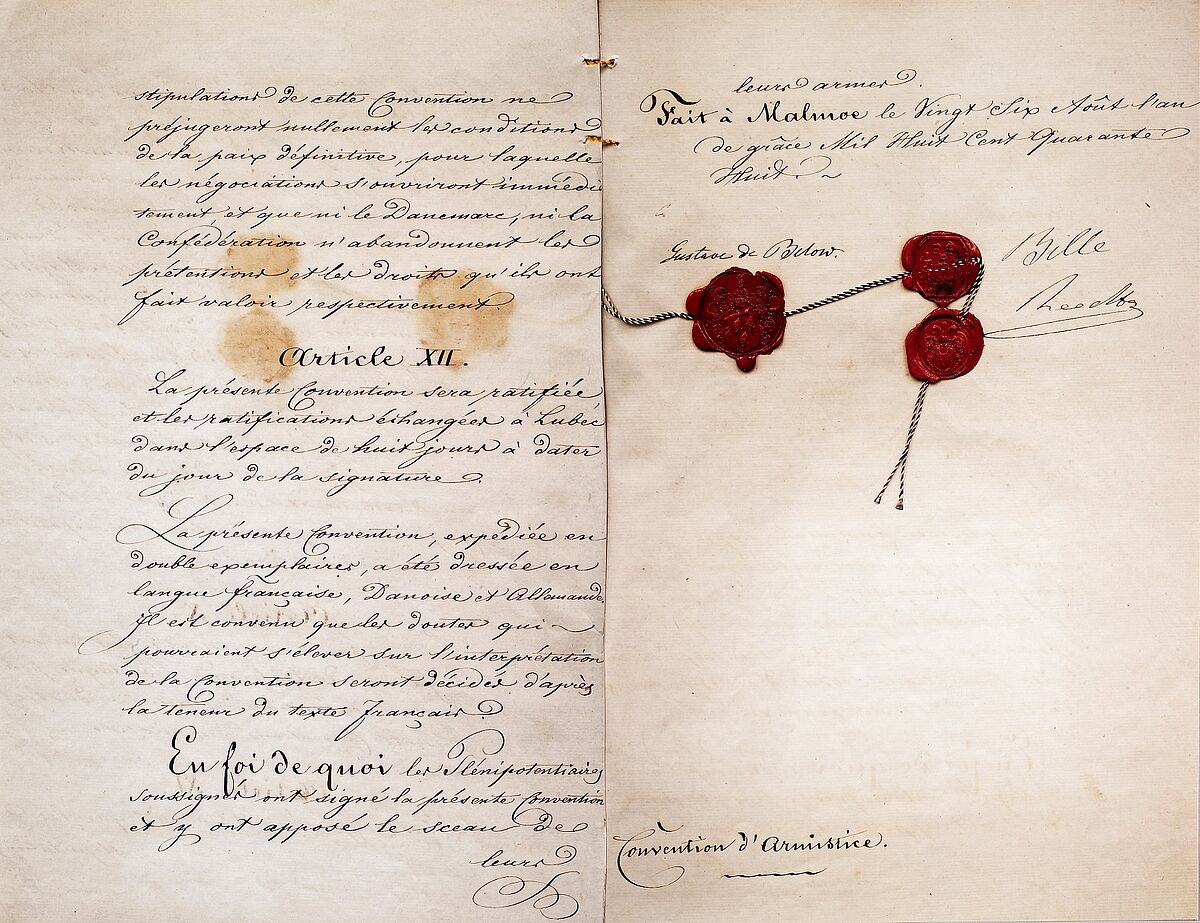 stipulations de cette Convention ne
préjugeront nullement les conditions
de la paix définitive, pour laquelle
les négociations s'ouvriront immédia
tement, et que ni le Danemarc, ni la
Confédération n'abandonnent les
prétentions et les droits qu'ils ont
fait valoir respectivement.
Article XII.
La présente Convention sera ratifiée,
et les ratifications échangées à Lubéc
dans l'espace de huit jours à dater
du jour de la signature.
La présente Convention, expédiée en
double exemplaires, a été dressée en
langue française, Danoise et Allemande.
Il est convenu que les doutes qui
pourraient s'élever sur l'interprétation
de la Convention seront décidés d'après
la teneur du texte français.
En foi de quoi les Plénipotentiaires
soussignés ont signé la présente Convention
et y ont apposé le sceau de
leurs
leurs armes.
Fait à Malmoe le Vingt Six Août l'an
de grâce Mil Huit Cent Quarante
Huit.
Gustave de Below.
Bille
Reedtz
Convention d'Armistice.